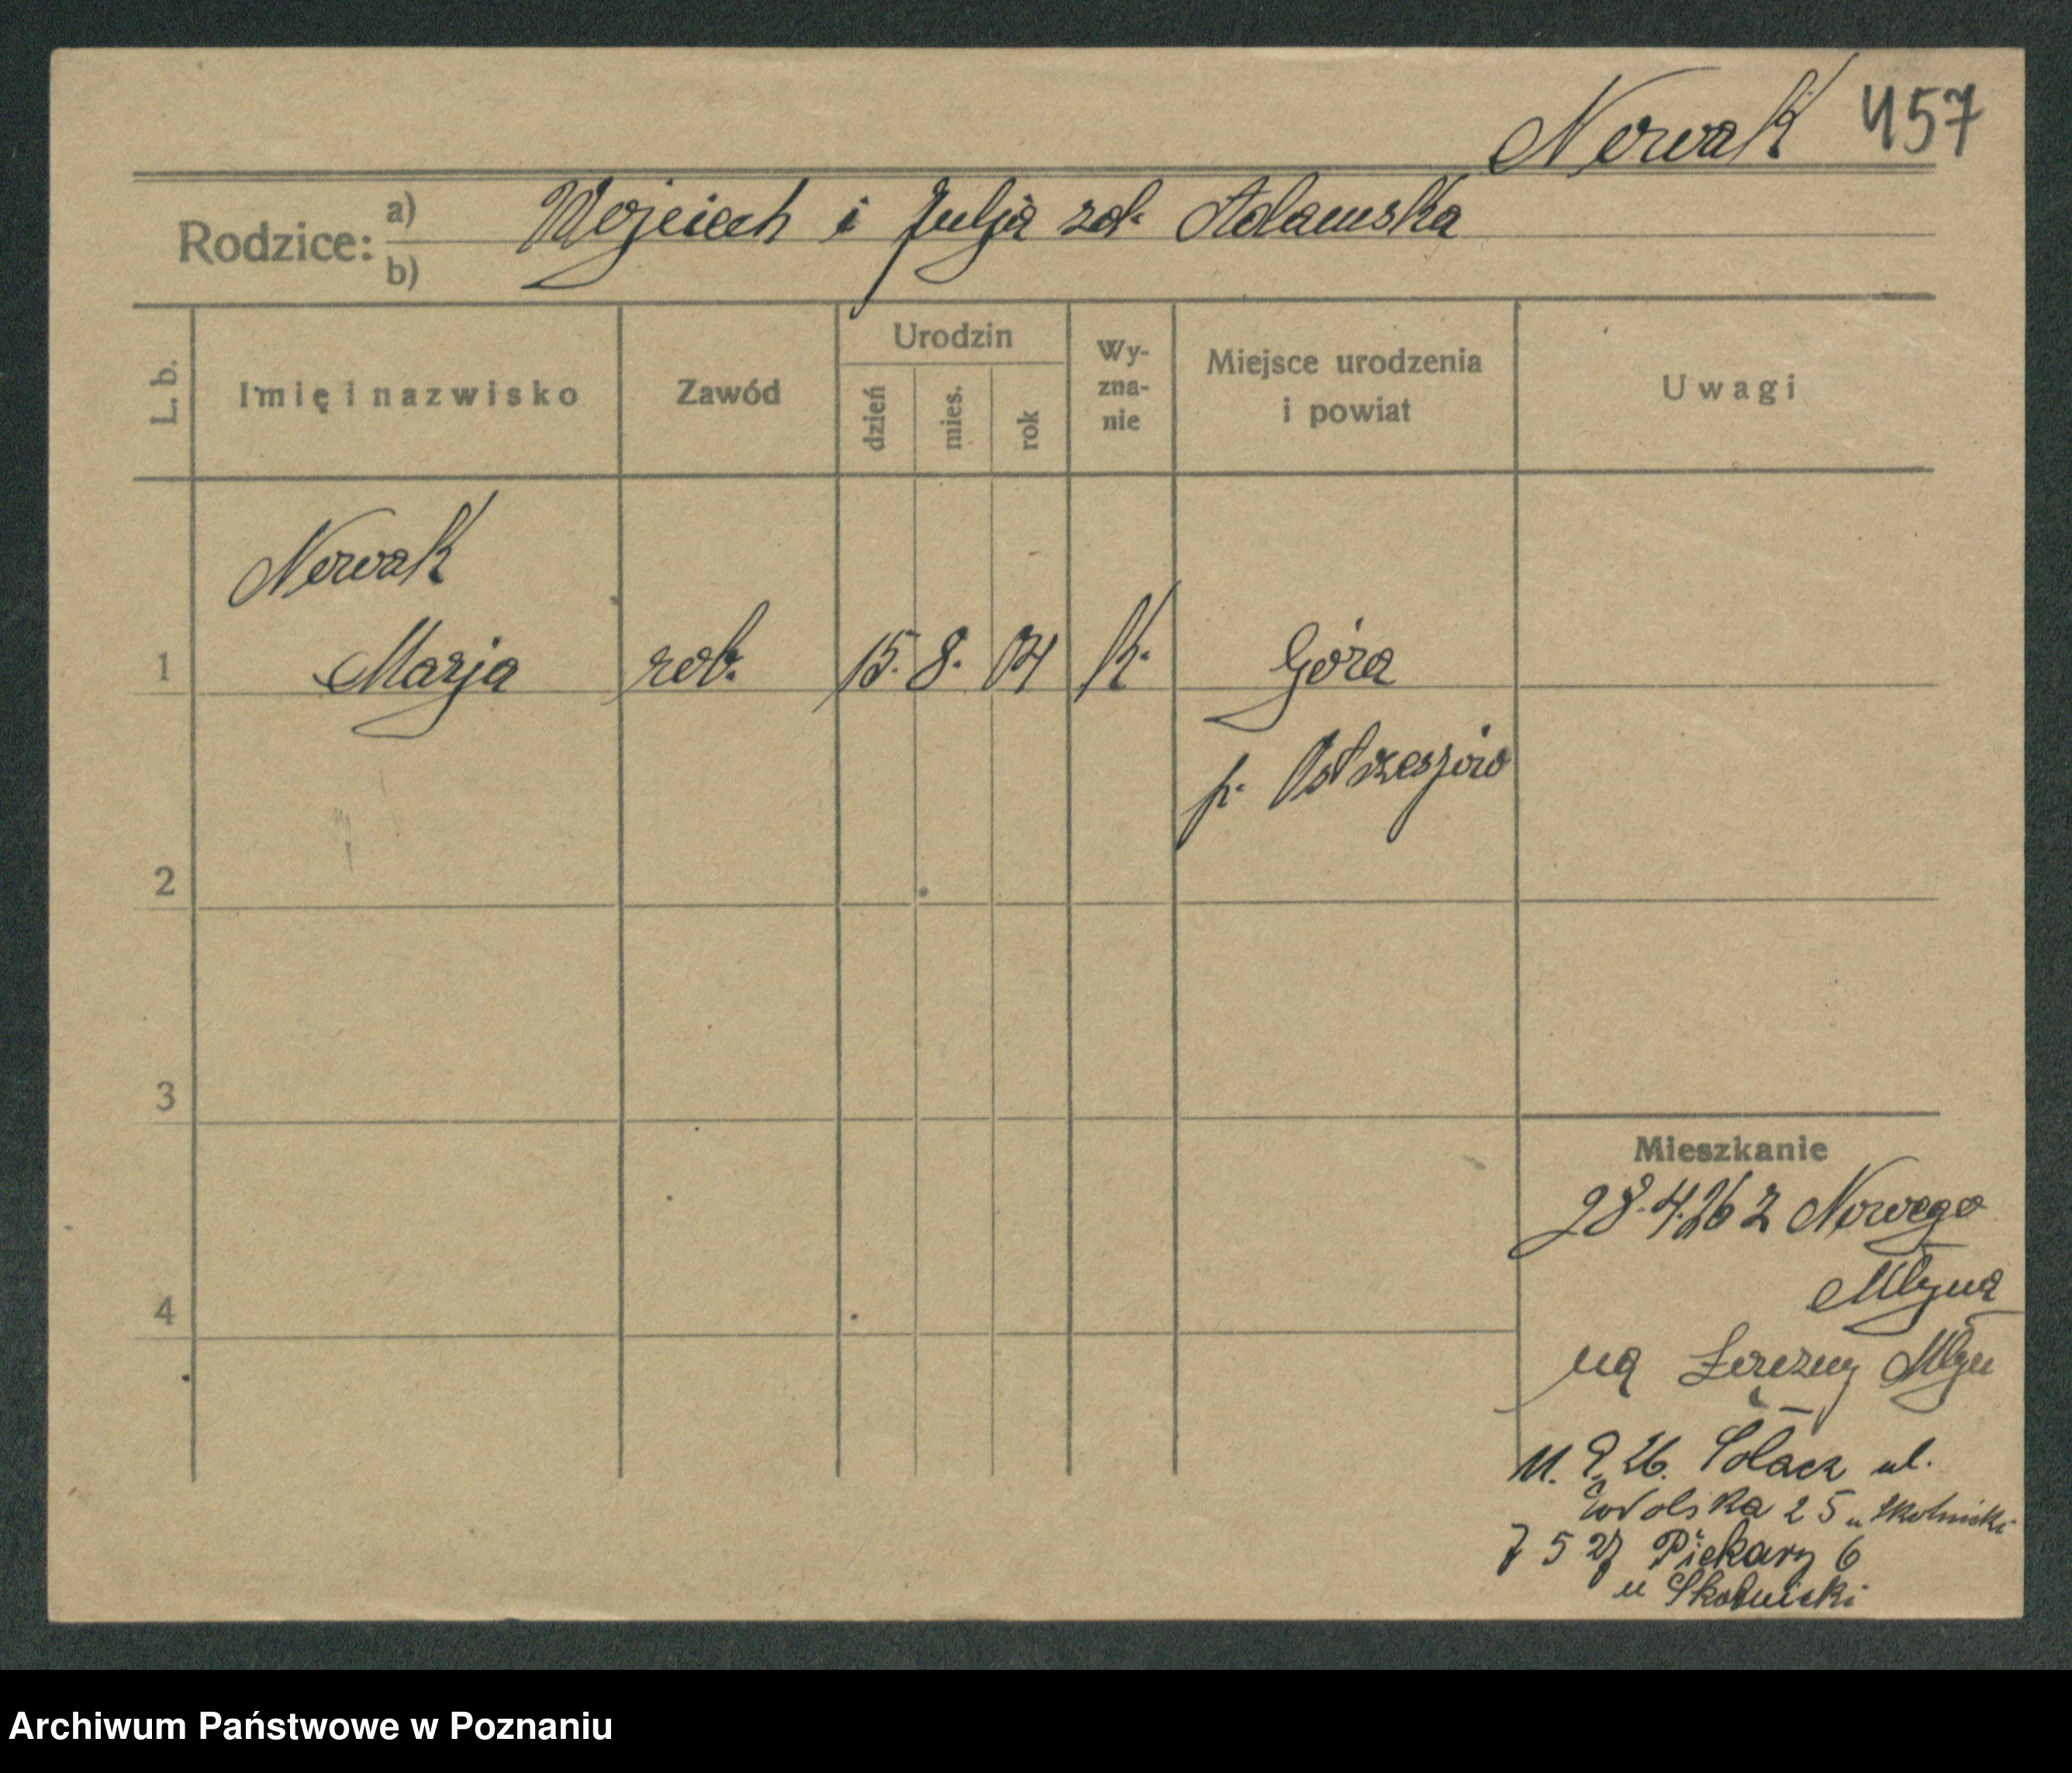 Nowak 457
Rodzice: a) Wojciech i Julja zd. Adamska
b)
L. b. Imię i nazwisko Zawód Urodzin dzień mies. rok Wyznanie Miejsce urodzenia i powiat Uwagi
Nowak
1 Marja rob. 15. 8. 04 K. Góra
p. Ostrzeszów
2
3
Mieszkanie
28.4.26 z Nowego
4 Młyna
na Młyn
11. 9. 26. Sołacz ul.
Wolska 25 u Skolnicki
7 5 27 Piekary 6
u Skolnicki
Archiwum Państwowe w Poznaniu